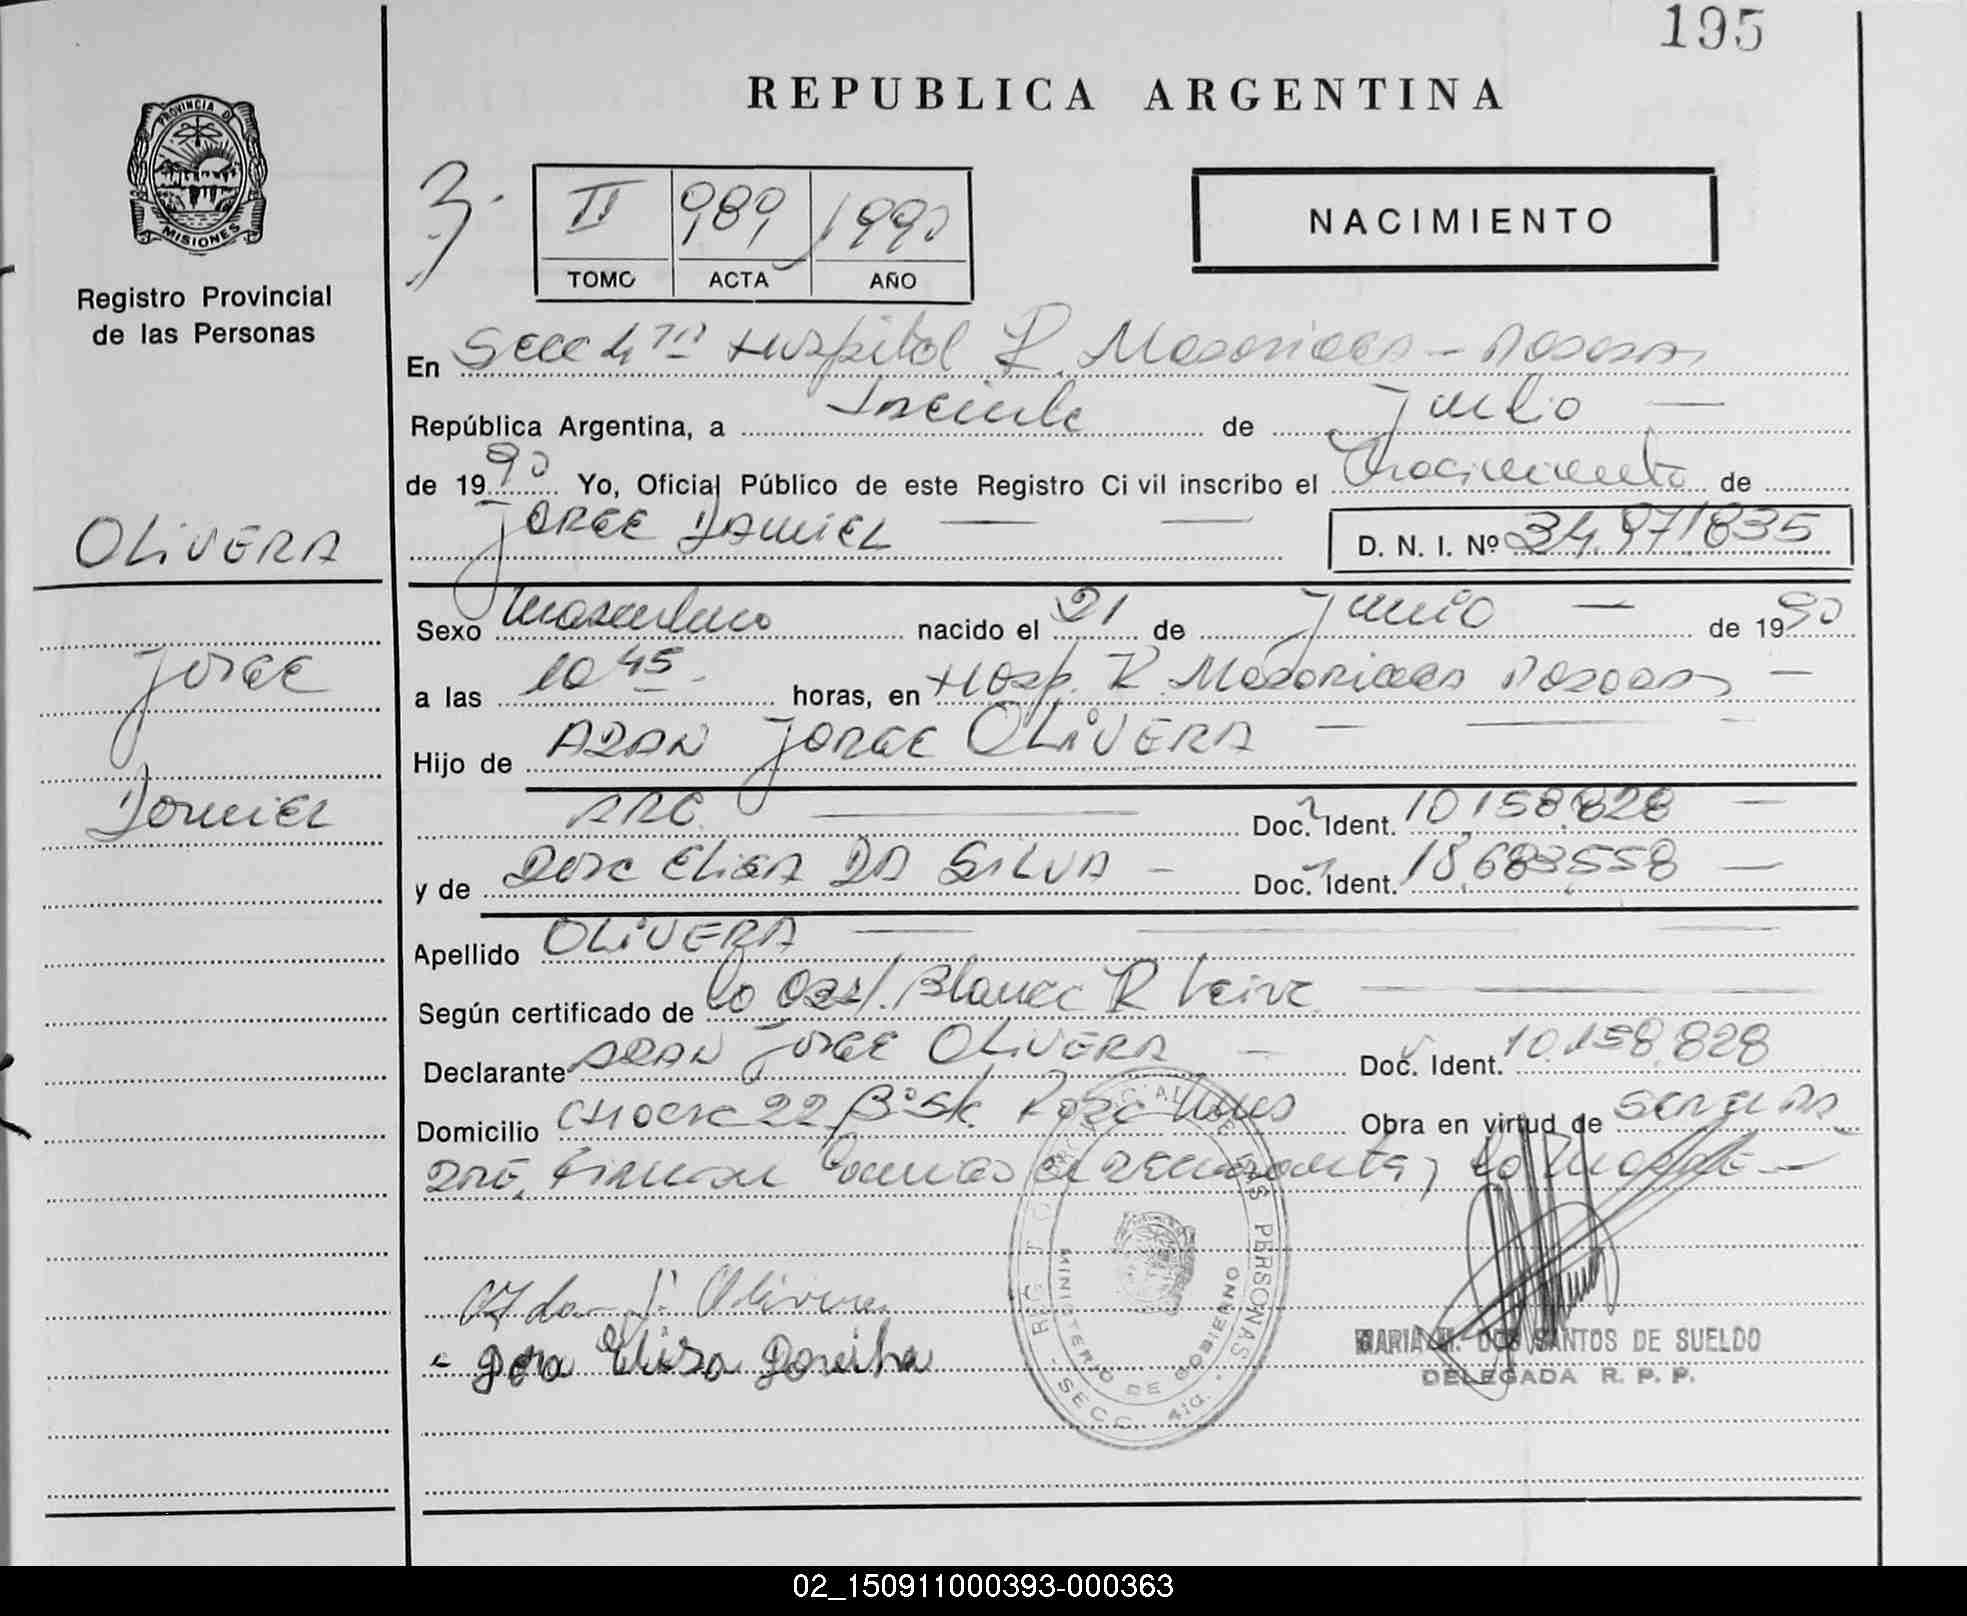 195
REPUBLICA ARGENTINA
PROVINCIA DE
MISIONES
Registro Provincial
de las Personas
3.
II 989 1990
TOMO ACTA AÑO
NACIMIENTO
En Secc 4ta Hospital R. Madariaga - Posadas
República Argentina, a de Julio
de 1990 Yo, Oficial Público de este Registro Civil inscribo el Nacimiento de
JORGE DANIEL D. N. I. Nº 34.971835
OLIVERA
JORGE
DANIEL
Sexo Masculino nacido el 21 de Junio de 1990
a las 10 45 horas, en Hosp. R. Madariaga Posadas
Hijo de ADAN JORGE OLIVERA
ARG. Doc. Ident. 10.158.828
y de Dora ELISA DA SILVA Doc. Ident. 18.683.558
Apellido OLIVERA
Según certificado de la Obst. Blanca R Leiva
Declarante ADAN JORGE OLIVERA Doc. Ident. 10.158.828
Domicilio CHACRA 22 Bº Sta. Obra en virtud de SER EL PA
DRE, Firman conmigo el declarante y la madre
Adan J. Olivera
Dora Eliza
REG PERSONAS
MINISTERIO DE GOBIERNO
SECC. 4ta.
MARIA M. DOS SANTOS DE SUELDO
DELEGADA R. P. P.
02_150911000393-000363